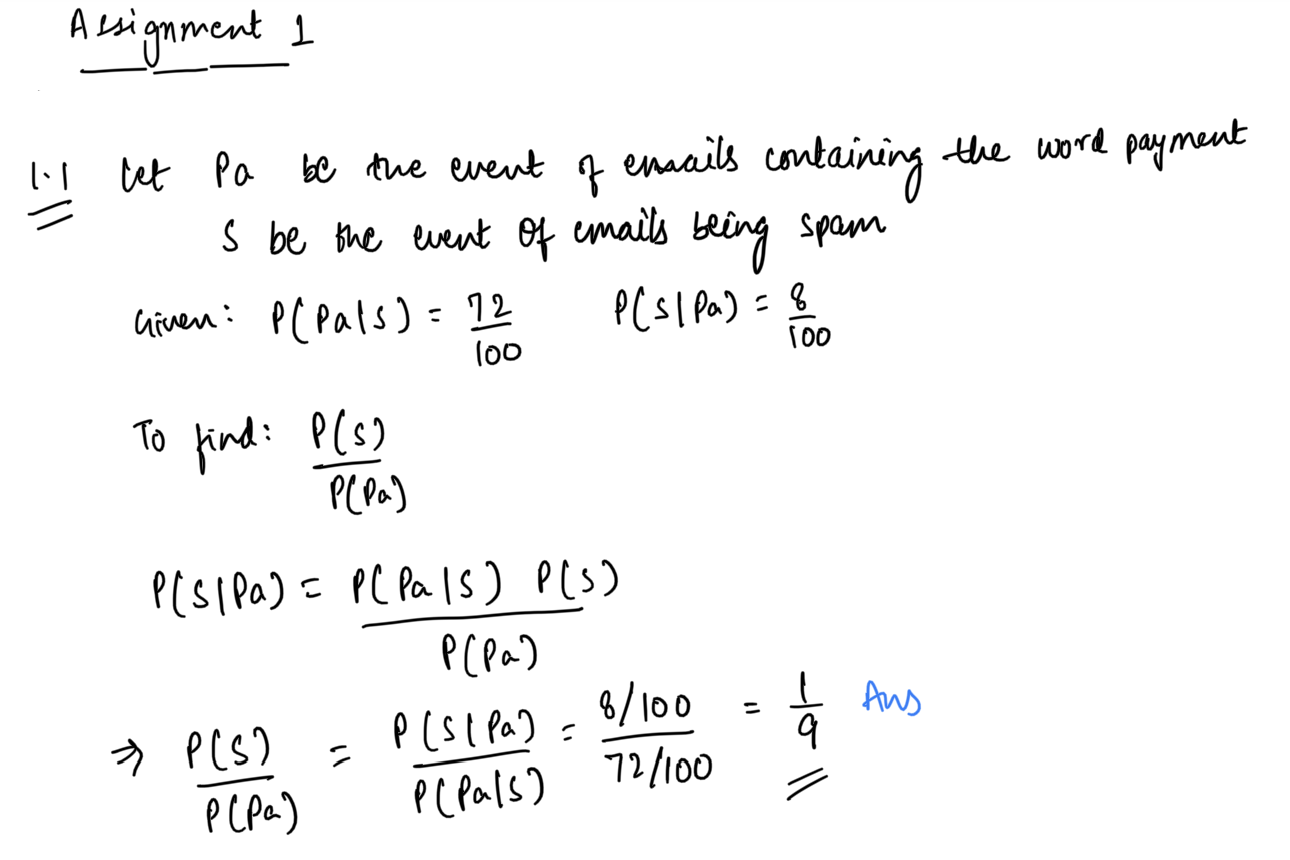 Assignment 1
1.1 Let Pa be the event of emails containing the word payment
S be the event of emails being spam
Given: P(Pa|S) = 72/100    P(S|Pa) = 8/100
To find: P(S)/P(Pa)
P(S|Pa) = P(Pa|S) P(S)/P(Pa)
⇒ P(S)/P(Pa) = P(S|Pa)/P(Pa|S) = 8/100/72/100 = 1/9 Ans